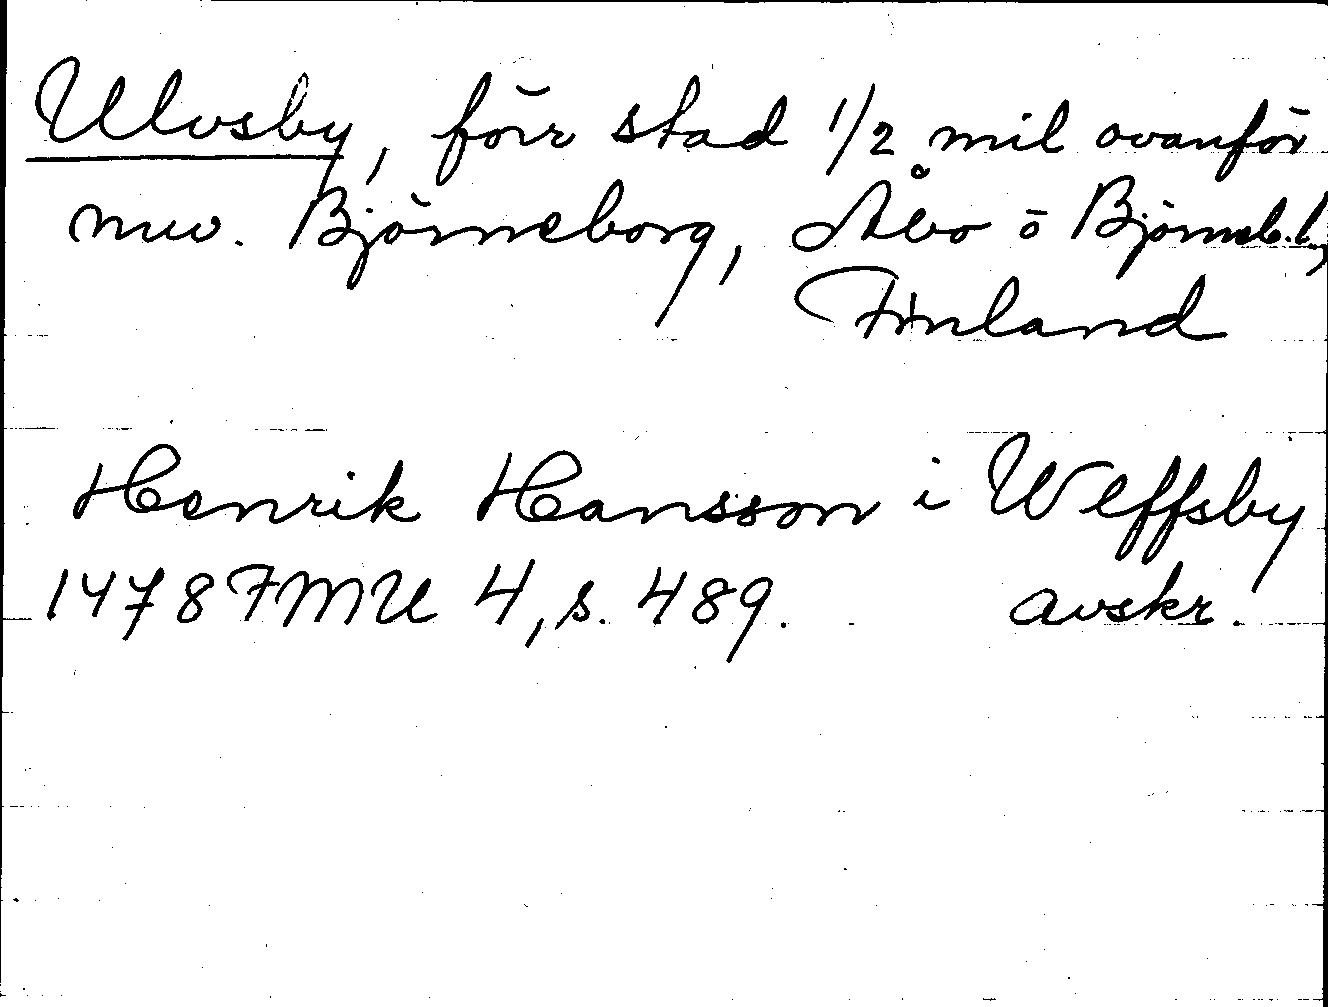 Ulvsby, förr stad 1/2 mil ovanför
nuv. Björneborg, Åbo o Björneb. l,
Finland
Henrik Hansson i Wlffsby
1478 FMU 4, s. 489. avskr.